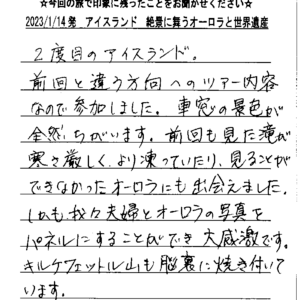 ☆今回の旅で印象に残ったことをお聞かせください☆
2023/1/14発　アイスランド　絶景に舞うオーロラと世界遺産
2度目のアイスランド。
前回と違う方向へのツアー内容
なので参加しました。車窓の景色が
全然ちがいます。前回も見た滝が
寒さ厳しく、より凍っていたり、見ることが
できなかったオーロラにも出会えました。
しかも我々夫婦とオーロラの写真を
パネルにすることができ大感激です。
キルケフェットル山も脳裏に焼き付いて
います。